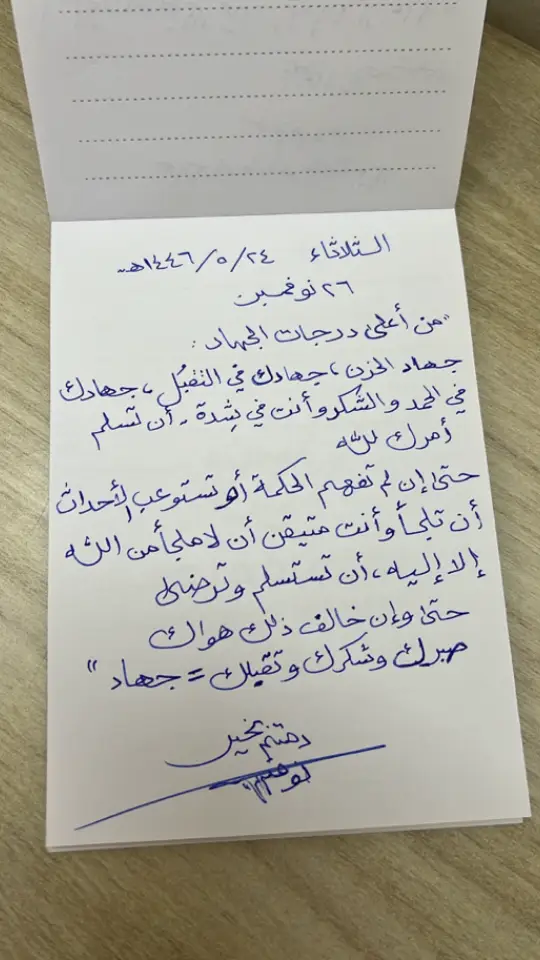 الثلاثاء ٢٤/٥/١٤٤٦هـ
٢٦ نوفمبر
"من أعلى درجات الجهاد:
جهاد الحزن، جهادك في التقبُل، جهادك
في الحمد والشكر وأنت في شِدة - أن تسلم
أمرك لله
حتى إن لم تفهم الحكمة أو تستوعب الأحداث
أن تلجأ وأنت متيقن أن لا ملجأ من الله
إلا إليه، أن تستسلم وترضى
حتى وإن خالف ذلك هواك
صبرك وشكرك وتقبلك = جهاد"
دمتم بخير